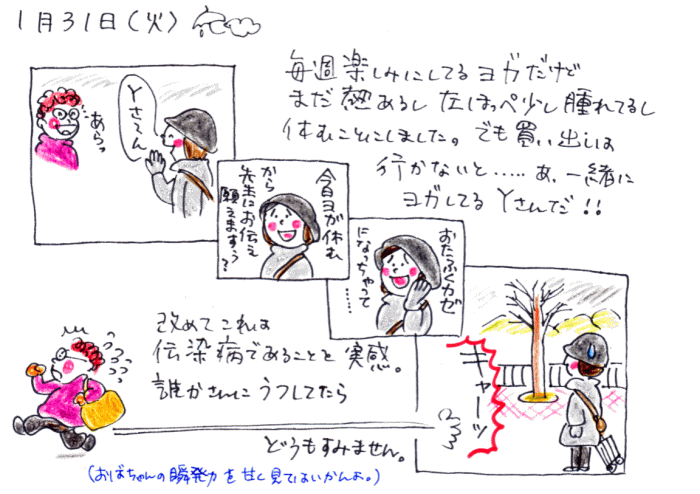 1月31日(火)
毎週楽しみにしてるヨガだけど
まだ熱あるし 左ほっぺ少し腫れてるし
休むことにしました。でも買い出しは
行かないと……あ、一緒に
ヨガしてる Yさんだ!!
Yさ〜ん
あらっ
今日ヨガ休む
から
先生にお伝え
願えますぅ?
おたふくカゼ
になっちゃって
……
キャーッ
改めてこれは
伝染病であることを実感。
誰かさんにうつしてたら
どうもすみません。
(おばちゃんの瞬発力を甘く見てはいかんよ。)